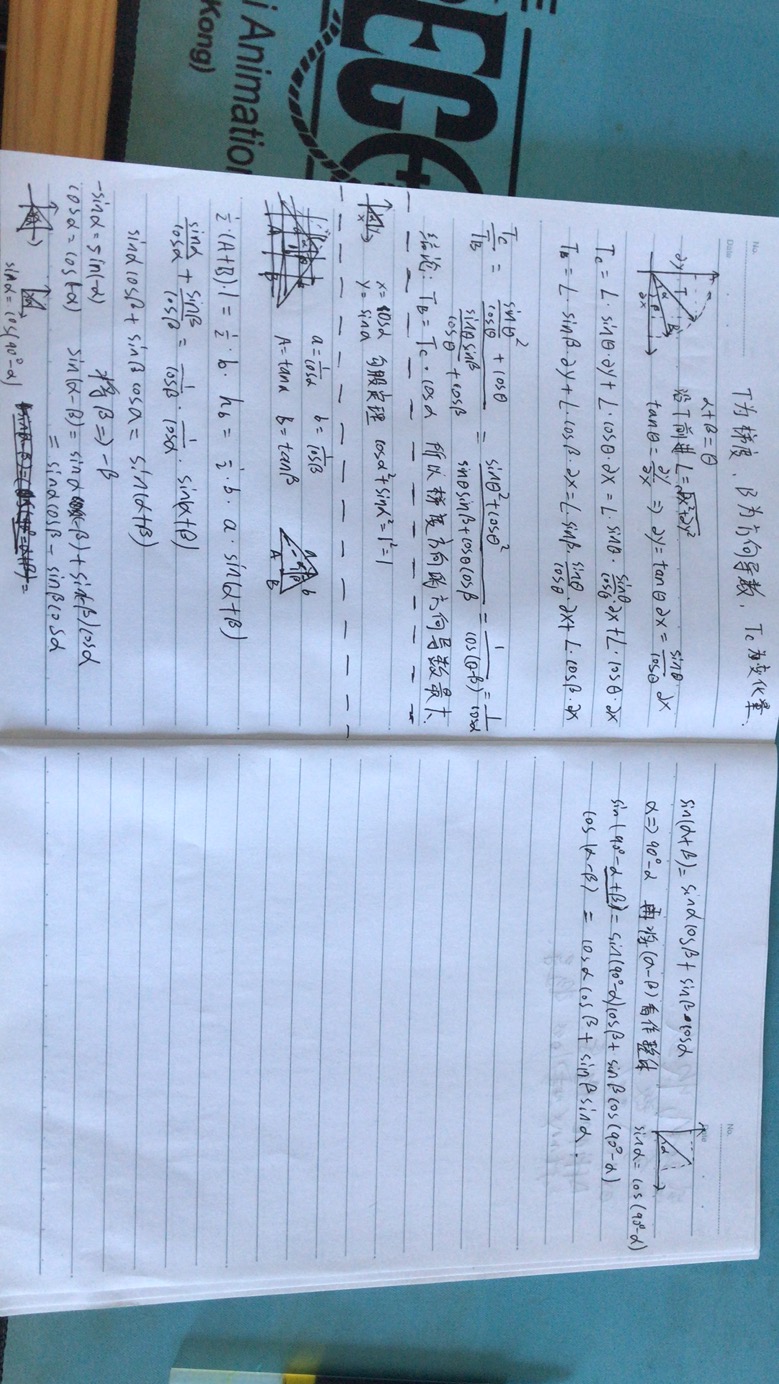 EC
i Animation
Kong)
No.
Date
T为梯度, B为方向导数, Tc为变化率.
α+β=θ
沿T前进 L=√∂x²+∂y²
tanθ = ∂y/∂x ⇒ ∂y = tanθ ∂x = sinθ/cosθ ∂x
Tc = L·sinθ·∂y + L·cosθ·∂x = L·sinθ·sinθ/cosθ ∂x + L·cosθ·∂x
TB = L·sinβ·∂y + L·cosβ·∂x = L·sinβ·sinθ/cosθ·∂x + L·cosβ·∂x
Tc/TB = (sinθ²/cosθ + cosθ)/(sinθ sinβ/cosθ + cosβ) = (sinθ²+cosθ²)/(sinθsinβ+cosθcosβ) = 1/cos(θ-β) = 1/cosα
结论: TB = Tc·cosα 所以梯度方向的方向导数最大.
x=cosα 勾股定理 cosα²+sinα²=1²=1
y=sinα
a=1/cosα b=1/cosβ
A=tanα b=tanβ
½·(A+B)·1 = ½·b·hb = ½·b·a·sin(α+β)
sinα/cosα + sinβ/cosβ = 1/cosβ · 1/cosα · sin(α+β)
sinα cosβ + sinβ cosα = sin(α+β)
-sinα = sin(-α) 将β⇒-β
cosα = cos(-α) sin(α-β) = sinα cos(-β) + sin(-β)cosα
= sinα cosβ - sinβ cosα
sinα = cos(90°-α)
No.
Date
sin(α+β) = sinα cosβ + sinβ·cosα
α⇒90°-α 再将(α-β)看作整体 sinα = cos(90°-α)
sin(90°-α+β) = sin(90°-α)cosβ + sinβ cos(90°-α)
cos(α-β) = cosα cosβ + sinβ sinα.